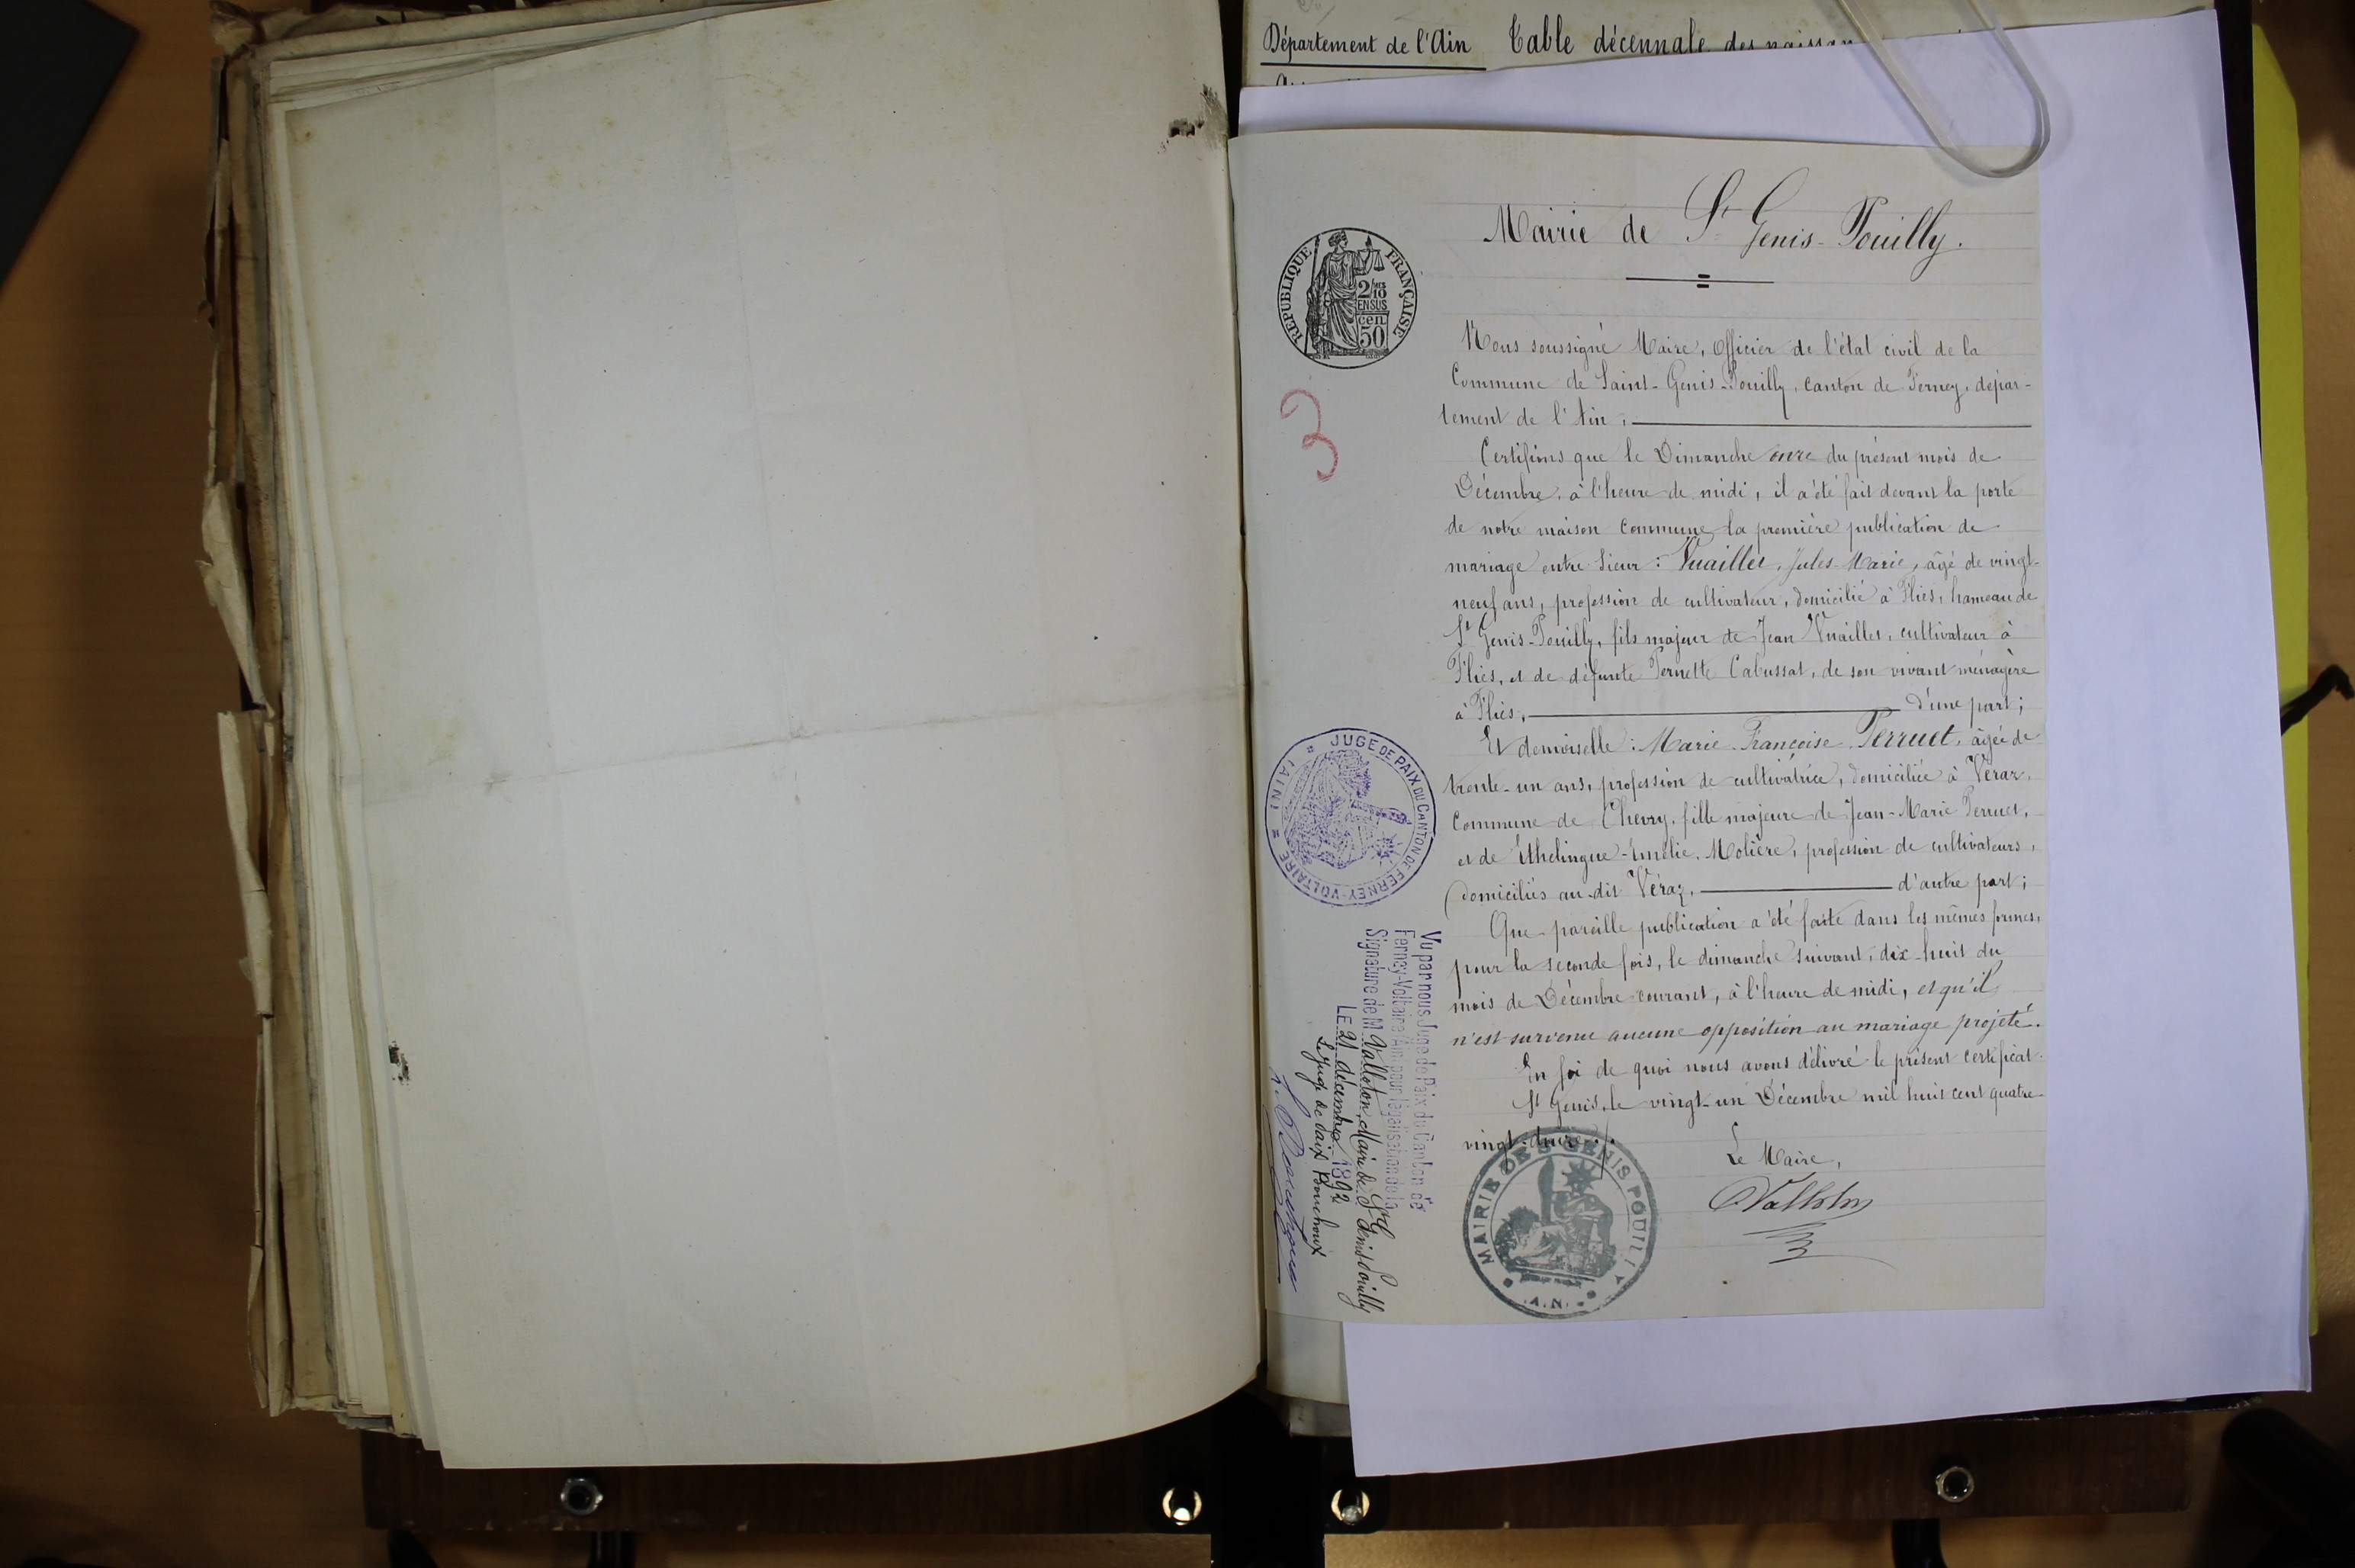 Département de l'Ain Table décennale des
Mairie de St Genis-Pouilly.
REPUBLIQUE FRANÇAISE
2/10
EN SUS
cen
50
3
Nous soussigné Maire, Officier de l'état civil de la
Commune de Saint-Genis-Pouilly, canton de Ferney, dépar-
tement de l'Ain,
Certifions que le Dimanche onze du présent mois de
Décembre, à l'heure de midi, il a été fait devant la porte
de notre maison commune la première publication de
mariage entre Sieur : Vuaillet, Jules-Marie, âgé de vingt-
neuf ans, profession de cultivateur, domicilié à Flies, hameau de
St Genis-Pouilly, fils majeur de Jean Vuaillet, cultivateur à
Flies, et de défunte Pernette Cabussat, de son vivant ménagère
à Flies, d'une part ;
Et demoiselle : Marie-Françoise Perruet, âgée de
trente-un ans, profession de cultivatrice, domiciliée à Véraz,
Commune de Chevry, fille majeure de Jean-Marie Perruet,
et de Ethelingue-Amélie Molière, profession de cultivateurs,
domiciliés au-dit Véraz, d'autre part ;
Que pareille publication a été faite dans les mêmes formes,
pour la seconde fois, le dimanche suivant, dix-huit du
mois de Décembre courant, à l'heure de midi, et qu'il
n'est survenu aucune opposition au mariage projeté.
En foi de quoi nous avons délivré le présent certificat.
St Genis, le vingt-un Décembre mil huit cent quatre-
vingt-douze./.
Le Maire,
Valloton
MAIRIE DE ST GENIS POUILLY
JUGE DE PAIX DU CANTON DE FERNEY-VOLTAIRE (AIN)
Vu par nous Juge de Paix du Canton de
Ferney-Voltaire (Ain) pour légalisation de la
Signature de M. Valloton, Maire de St Genis Pouilly
LE 21 décembre 1892
Le Juge de Paix